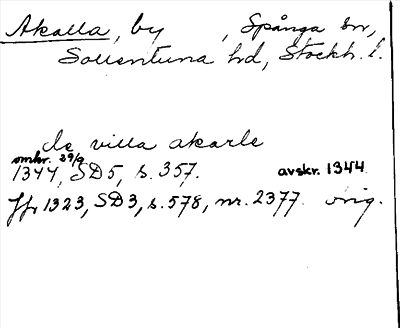 Akalla, by , Spånga sn,
Sollentuna hd, Stockh. l.
de villa akarle
omkr. 29/9
1344, SD5, s. 357. avskr. 1344
Jfr 1323, SD3, s. 578, nr. 2377. orig.